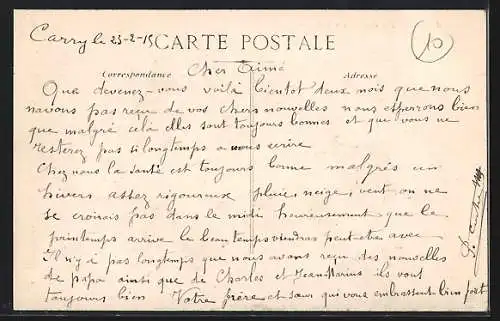 Carry le 23-2-15
CARTE POSTALE
10
Correspondance
Adresse
Cher Aimé
Que devenez-vous voilà bientot deux mois que nous
navons pas reçu de vos chers nouvelles nous esperrons bien
que malgré celà elles sont toujours bonnes et que vous ne
resterez pas si longtemps a nous ecrire
Chez nous la santé est toujours bonne malgrés un
hivers assez rigoureux pluie, neige, vent on ne
se croirais pas dans le midi heureusement que le
printemps arrive le beau temps viendras peut-etre avec
Il n'y à pas longtemps que nous avons reçu des nouvelles
de papa ainsi que de Charles et Jean Marius ils vont
toujours bien Votre frère et sœur qui vous embrassent bien fort